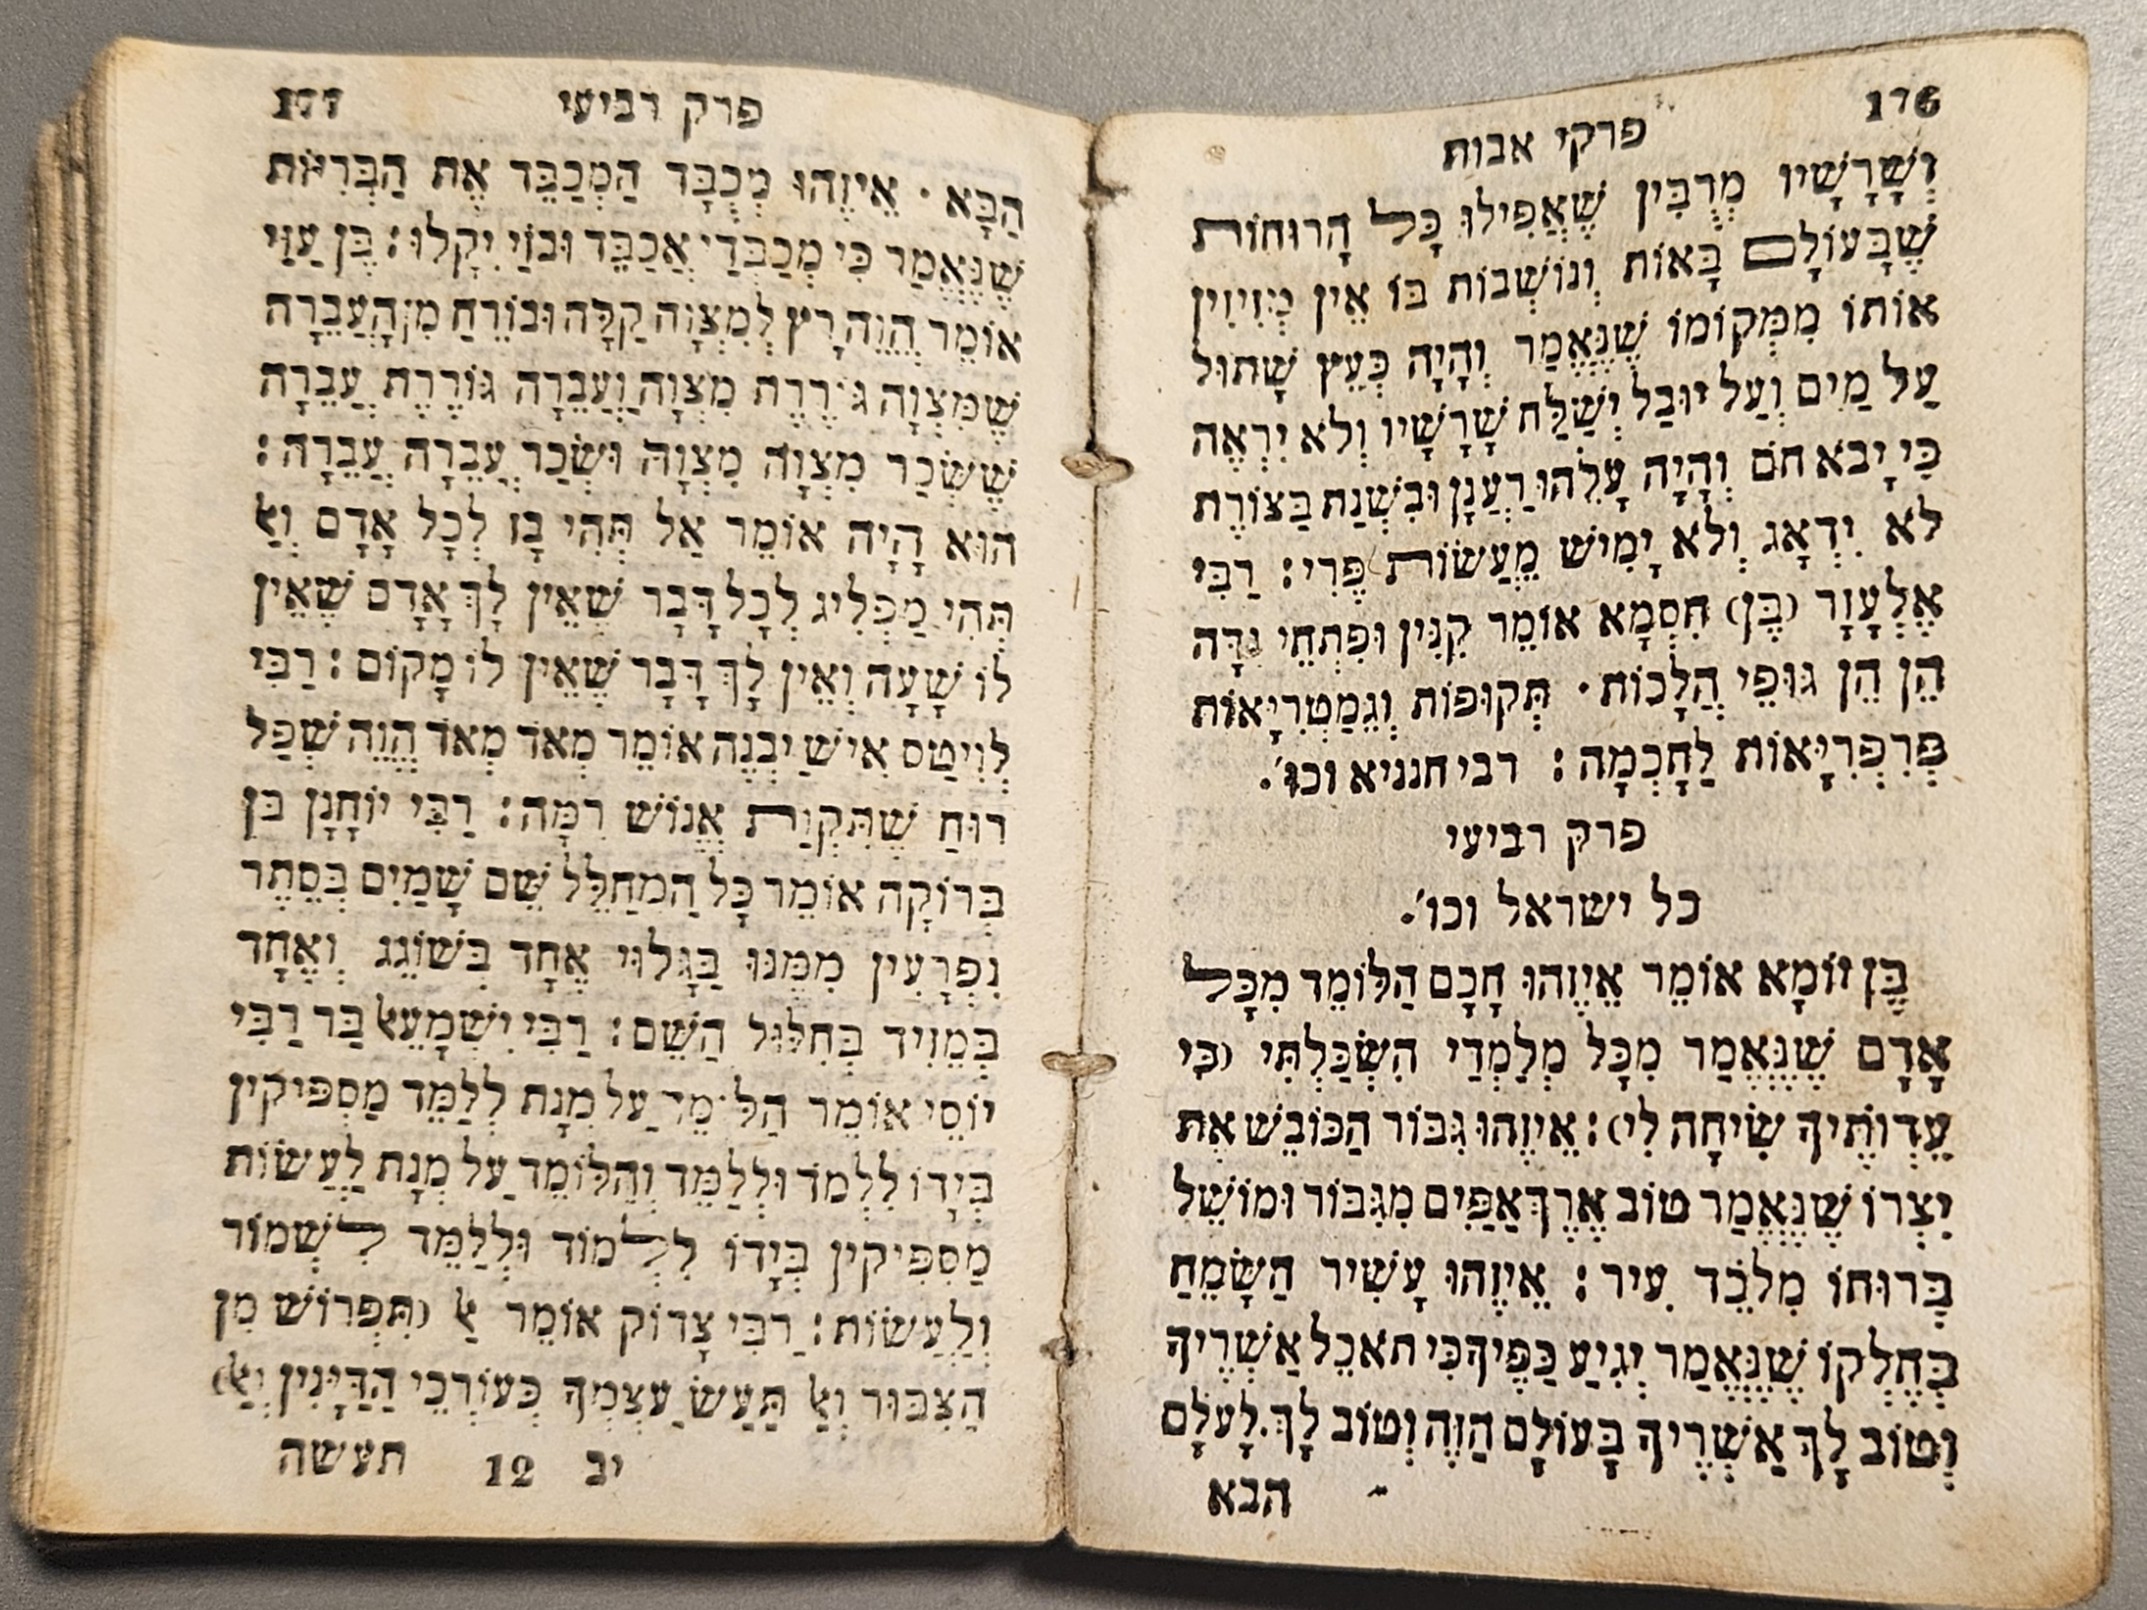 176
פרקי אבות
וְשָׁרָשָׁיו מְרֻבִּין שֶׁאֲפִילוּ כָּל הָרוּחוֹת
שֶׁבָּעוֹלָם בָּאוֹת וְנוֹשְׁבוֹת בּוֹ אֵין מְזִיזִין
אוֹתוֹ מִמְּקוֹמוֹ שֶׁנֶּאֱמַר וְהָיָה כְּעֵץ שָׁתוּל
עַל מַיִם וְעַל יוּבַל יְשַׁלַּח שָׁרָשָׁיו וְלֹא יִרְאֶה
כִּי יָבֹא חֹם וְהָיָה עָלֵהוּ רַעֲנָן וּבִשְׁנַת בַּצּוֹרֶת
לֹא יִדְאָג וְלֹא יָמִישׁ מֵעֲשׂוֹת פֶּרִי: רַבִּי
אֶלְעָזָר (בֶּן) חִסְמָא אוֹמֵר קִנִּין וּפִתְחֵי נִדָּה
הֵן הֵן גּוּפֵי הֲלָכוֹת. תְּקוּפוֹת וְגִמַטְרִיָאוֹת
פְּרִפְּרִיָּאוֹת לַחָכְמָה: רבי חנניא וכו'.
פרק רביעי
כל ישראל וכו'.
בֶּן זוֹמָא אוֹמֵר אֵיזֶהוּ חָכָם הַלּוֹמֵד מִכָּל
אָדָם שֶׁנֶּאֱמַר מִכָּל מְלַמְּדַי הִשְׂכַּלְתִּי (כִּי
עֵדְוֹתֶיךָ שִׂיחָה לִי): אֵיזֶהוּ גִּבּוֹר הַכּוֹבֵשׁ אֶת
יִצְרוֹ שֶׁנֶּאֱמַר טוֹב אֶרֶךְ אַפַּיִם מִגִּבּוֹר וּמוֹשֵׁל
בְּרוּחוֹ מִלֹּכֵד עִיר: אֵיזֶהוּ עָשִׁיר הַשָּׂמֵחַ
בְּחֶלְקוֹ שֶׁנֶּאֱמַר יְגִיעַ כַּפֶּיךָ כִּי תֹאכֵל אַשְׁרֶיךָ
וְטוֹב לָךְ אַשְׁרֶיךָ בָּעוֹלָם הַזֶּה וְטוֹב לָךְ לָעֹלָם
הבא
177
פרק רביעי
הַבָּא. אֵיזֶהוּ מְכֻבָּד הַמְכַבֵּד אֶת הַבְּרִיּוֹת
שֶׁנֶּאֱמַר כִּי מְכַבְּדַי אֲכַבֵּד וּבוֹזַי יִקָלוּ: בֶּן עַזַּי
אוֹמֵר הֱוֵה רָץ לְמִצְוָה קַלָּה וּבוֹרֵחַ מִן הָעֲבֵרָה
שֶׁמִּצְוָה גּוֹרֶרֶת מִצְוָה וַעֲבֵרָה גּוֹרֶרֶת עֲבֵרָה
שֶׁשְּׂכַר מִצְוָה מִצְוָה וּשְׂכַר עֲבֵרָה עֲבֵרָה:
הוּא הָיָה אוֹמֵר אַל תְּהִי בָז לְכָל אָדָם וְאַל
תְּהִי מַפְלִיג לְכָל דָּבָר שֶׁאֵין לָךְ אָדָם שֶׁאֵין
לוֹ שָׁעָה וְאֵין לָךְ דָּבָר שֶׁאֵין לוֹ מָקוֹם: רַבִּי
לְוִיטַס אִישׁ יַבְנֶה אוֹמֵר מְאֹד מְאֹד הֱוֵה שְׁפַל
רוּחַ שֶׁתִּקְוַת אֱנוֹשׁ רִמָּה: רַבִּי יוֹחָנָן בֶּן
בְּרוֹקָה אוֹמֵר כָּל הַמְחַלֵּל שֵׁם שָׁמַיִם בְּסֵתֶר
נִפְרָעִין מִמֶּנּוּ בַּגָּלוּי אֶחָד בְּשׁוֹגֵג וְאֶחָד
בְּמֵזִיד בְּחִלּוּל הַשֵּׁם: רַבִּי יִשְׁמָעֵאל בַּר רַבִּי
יוֹסֵי אוֹמֵר הַלּוֹמֵד עַל מְנָת לְלַמֵּד מַסְפִּיקִין
בְּיָדוֹ לִלְמֹד וּלְלַמֵּד וְהַלּוֹמֵד עַל מְנָת לַעֲשׂוֹת
מַסְפִּיקִין בְּיָדוֹ לִלְמוֹד וּלְלַמֵּד לִשְׁמוֹר
וְלַעֲשׂוֹת: רַבִּי צָדוֹק אוֹמֵר אַל (תִּפְרוֹשׁ מִן
הַצִבּוּר וְאַל תַּעַשׂ עַצְמְךָ כְּעוֹרְכֵי הַדַּיָּנִין וְאַל)
יב 12 תעשה